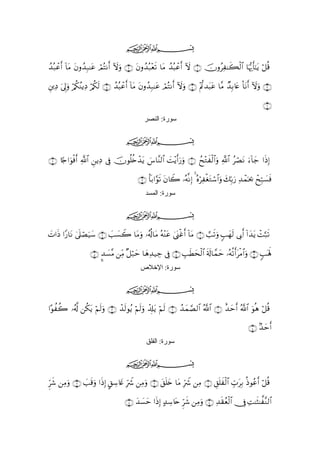 بِسْمِ ٱللَّهِ ٱلرَّحْمَٰنِ ٱلرَّحِيمِ
قُلْ يَٰٓأَيُّهَا ٱلْكَٰفِرُونَ ۝١ لَآ أَعْبُدُ مَا تَعْبُدُونَ ۝٢ وَلَآ أَنتُمْ عَٰبِدُونَ مَآ أَعْبُدُ
۝٣ وَلَآ أَنَا۠ عَابِدٌ مَّا عَبَدتُّمْ ۝٤ وَلَآ أَنتُمْ عَٰبِدُونَ مَآ أَعْبُدُ ۝٥ لَكُمْ دِينُكُمْ وَلِىَ دِينِ
۝٦
سورة: النصر
بِسْمِ ٱللَّهِ ٱلرَّحْمَٰنِ ٱلرَّحِيمِ
إِذَا جَآءَ نَصْرُ ٱللَّهِ وَٱلْفَتْحُ ۝١ وَرَأَيْتَ ٱلنَّاسَ يَدْخُلُونَ فِى دِينِ ٱللَّهِ أَفْوَاجًا ۝٢
فَسَبِّحْ بِحَمْدِ رَبِّكَ وَٱسْتَغْفِرْهُ ۚ إِنَّهُۥ كَانَ تَوَّابًۢا ۝٣
سورة: المسد
بِسْمِ ٱللَّهِ ٱلرَّحْمَٰنِ ٱلرَّحِيمِ
تَبَّتْ يَدَآ أَبِى لَهَبٍ وَتَبَّ ۝١ مَآ أَغْنَىٰ عَنْهُ مَالُهُۥ وَمَا كَسَبَ ۝٢ سَيَصْلَىٰ نَارًا ذَاتَ
لَهَبٍ ۝٣ وَٱمْرَأَتُهُۥ حَمَّالَةَ ٱلْحَطَبِ ۝٤ فِى جِيدِهَا حَبْلٌ مِّن مَّسَدٍۭ ۝٥
سورة: الإخلاص
بِسْمِ ٱللَّهِ ٱلرَّحْمَٰنِ ٱلرَّحِيمِ
قُلْ هُوَ ٱللَّهُ أَحَدٌ ۝١ ٱللَّهُ ٱلصَّمَدُ ۝٢ لَمْ يَلِدْ وَلَمْ يُولَدْ ۝٣ وَلَمْ يَكُن لَّهُۥ كُفُوًا
أَحَدٌۢ ۝٤
سورة: الفلق
بِسْمِ ٱللَّهِ ٱلرَّحْمَٰنِ ٱلرَّحِيمِ
قُلْ أَعُوذُ بِرَبِّ ٱلْفَلَقِ ۝١ مِن شَرِّ مَا خَلَقَ ۝٢ وَمِن شَرِّ غَاسِقٍ إِذَا وَقَبَ ۝٣ وَمِن شَرِّ
ٱلنَّفَّٰثَٰتِ فِى ٱلْعُقَدِ ۝٤ وَمِن شَرِّ حَاسِدٍ إِذَا حَسَدَ ۝٥